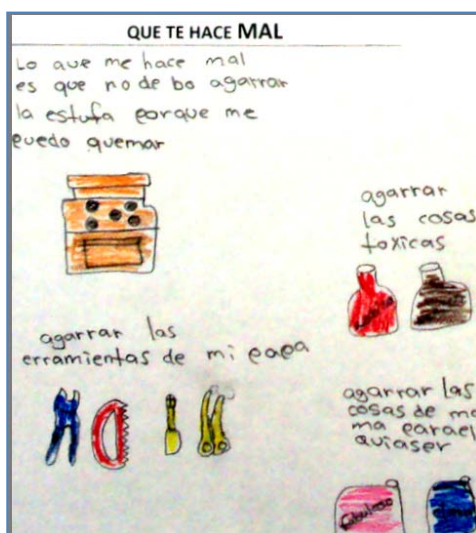 QUE TE HACE MAL
Lo que me hace mal
es que no de bo agarrar
la estufa porque me
puedo quemar
agarrar
las cosas
toxicas
agarrar las
erramientas de mi papa
agarrar las
cosas de ma
ma parael
quiaser
Fabuloso